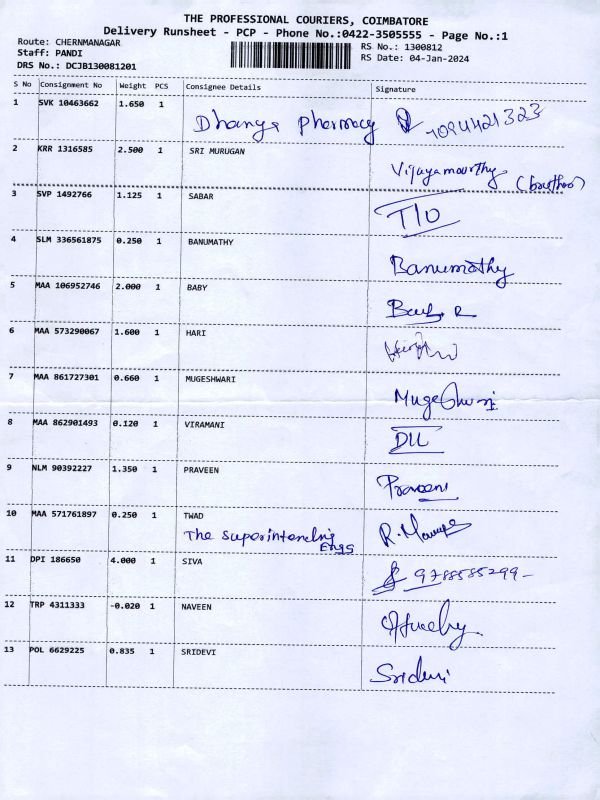 THE PROFESSIONAL COURIERS, COIMBATORE
Delivery Runsheet - PCP - Phone No.:0422-3505555 - Page No.:1
Route: CHERNMANAGAR
Staff: PANDI
DRS No.: DCJB130081201
RS No.: 1300812
RS Date: 04-Jan-2024
S No Consignment No Weight PCS Consignee Details Signature
1 SVK 10463662 1.650 1
Dhanya pharmacy
2 KRR 1316585 2.500 1 SRI MURUGAN
Vijayamourthy (brother)
3 SVP 1492766 1.125 1 SABAR
T/O
4 SLM 336561875 0.250 1 BANUMATHY
Banumathy
5 MAA 106952746 2.000 1 BABY
Baby R
6 MAA 573290067 1.600 1 HARI
7 MAA 861727301 0.660 1 MUGESHWARI
8 MAA 862901493 0.120 1 VIRAMANI
D/L
9 NLM 90392227 1.350 1 PRAVEEN
Praveen
10 MAA 571761897 0.250 1 TWAD
The Superintending
Engg
11 DPI 186650 4.000 1 SIVA
9788585299
12 TRP 4311333 -0.020 1 NAVEEN
13 POL 6629225 0.835 1 SRIDEVI
Sridevi